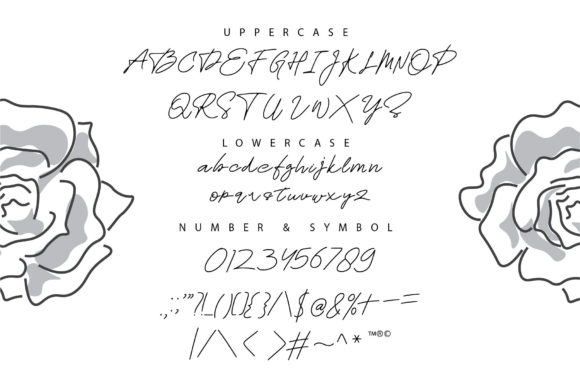 UPPERCASE
ABCDEFGHIJKLMNOP
QRSTUVWXYZ
LOWERCASE
abcdefghijklmn
opqrstuvwxyz
NUMBER & SYMBOL
0123456789
.,:;'"?!_()[]{}/\$@&%+-=
|/\<>#~^*™®©